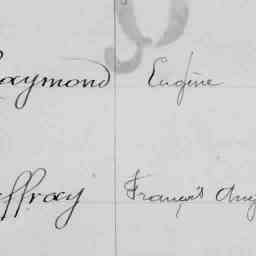 Raymond Eugène
effray François Aug